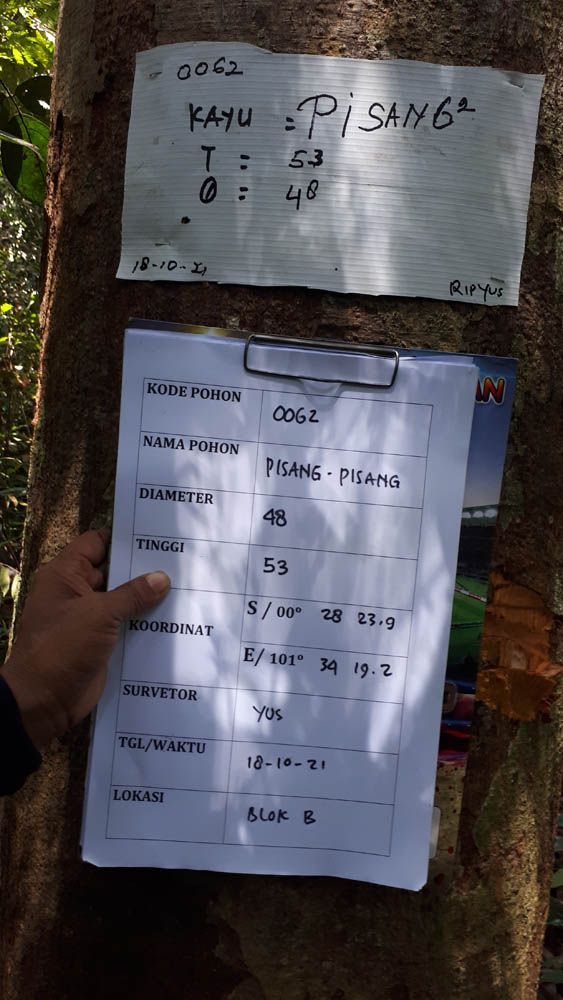 0062
KAYU = PISANG²
T = 53
Ø = 48
18-10-21
RIPYUS
AN
KODE POHON 0062
NAMA POHON PISANG - PISANG
DIAMETER 48
TINGGI 53
KOORDINAT S / 00° 28 23.9
E/ 101° 34 19.2
SURVETOR YUS
TGL/WAKTU 18-10-21
LOKASI BLOK B